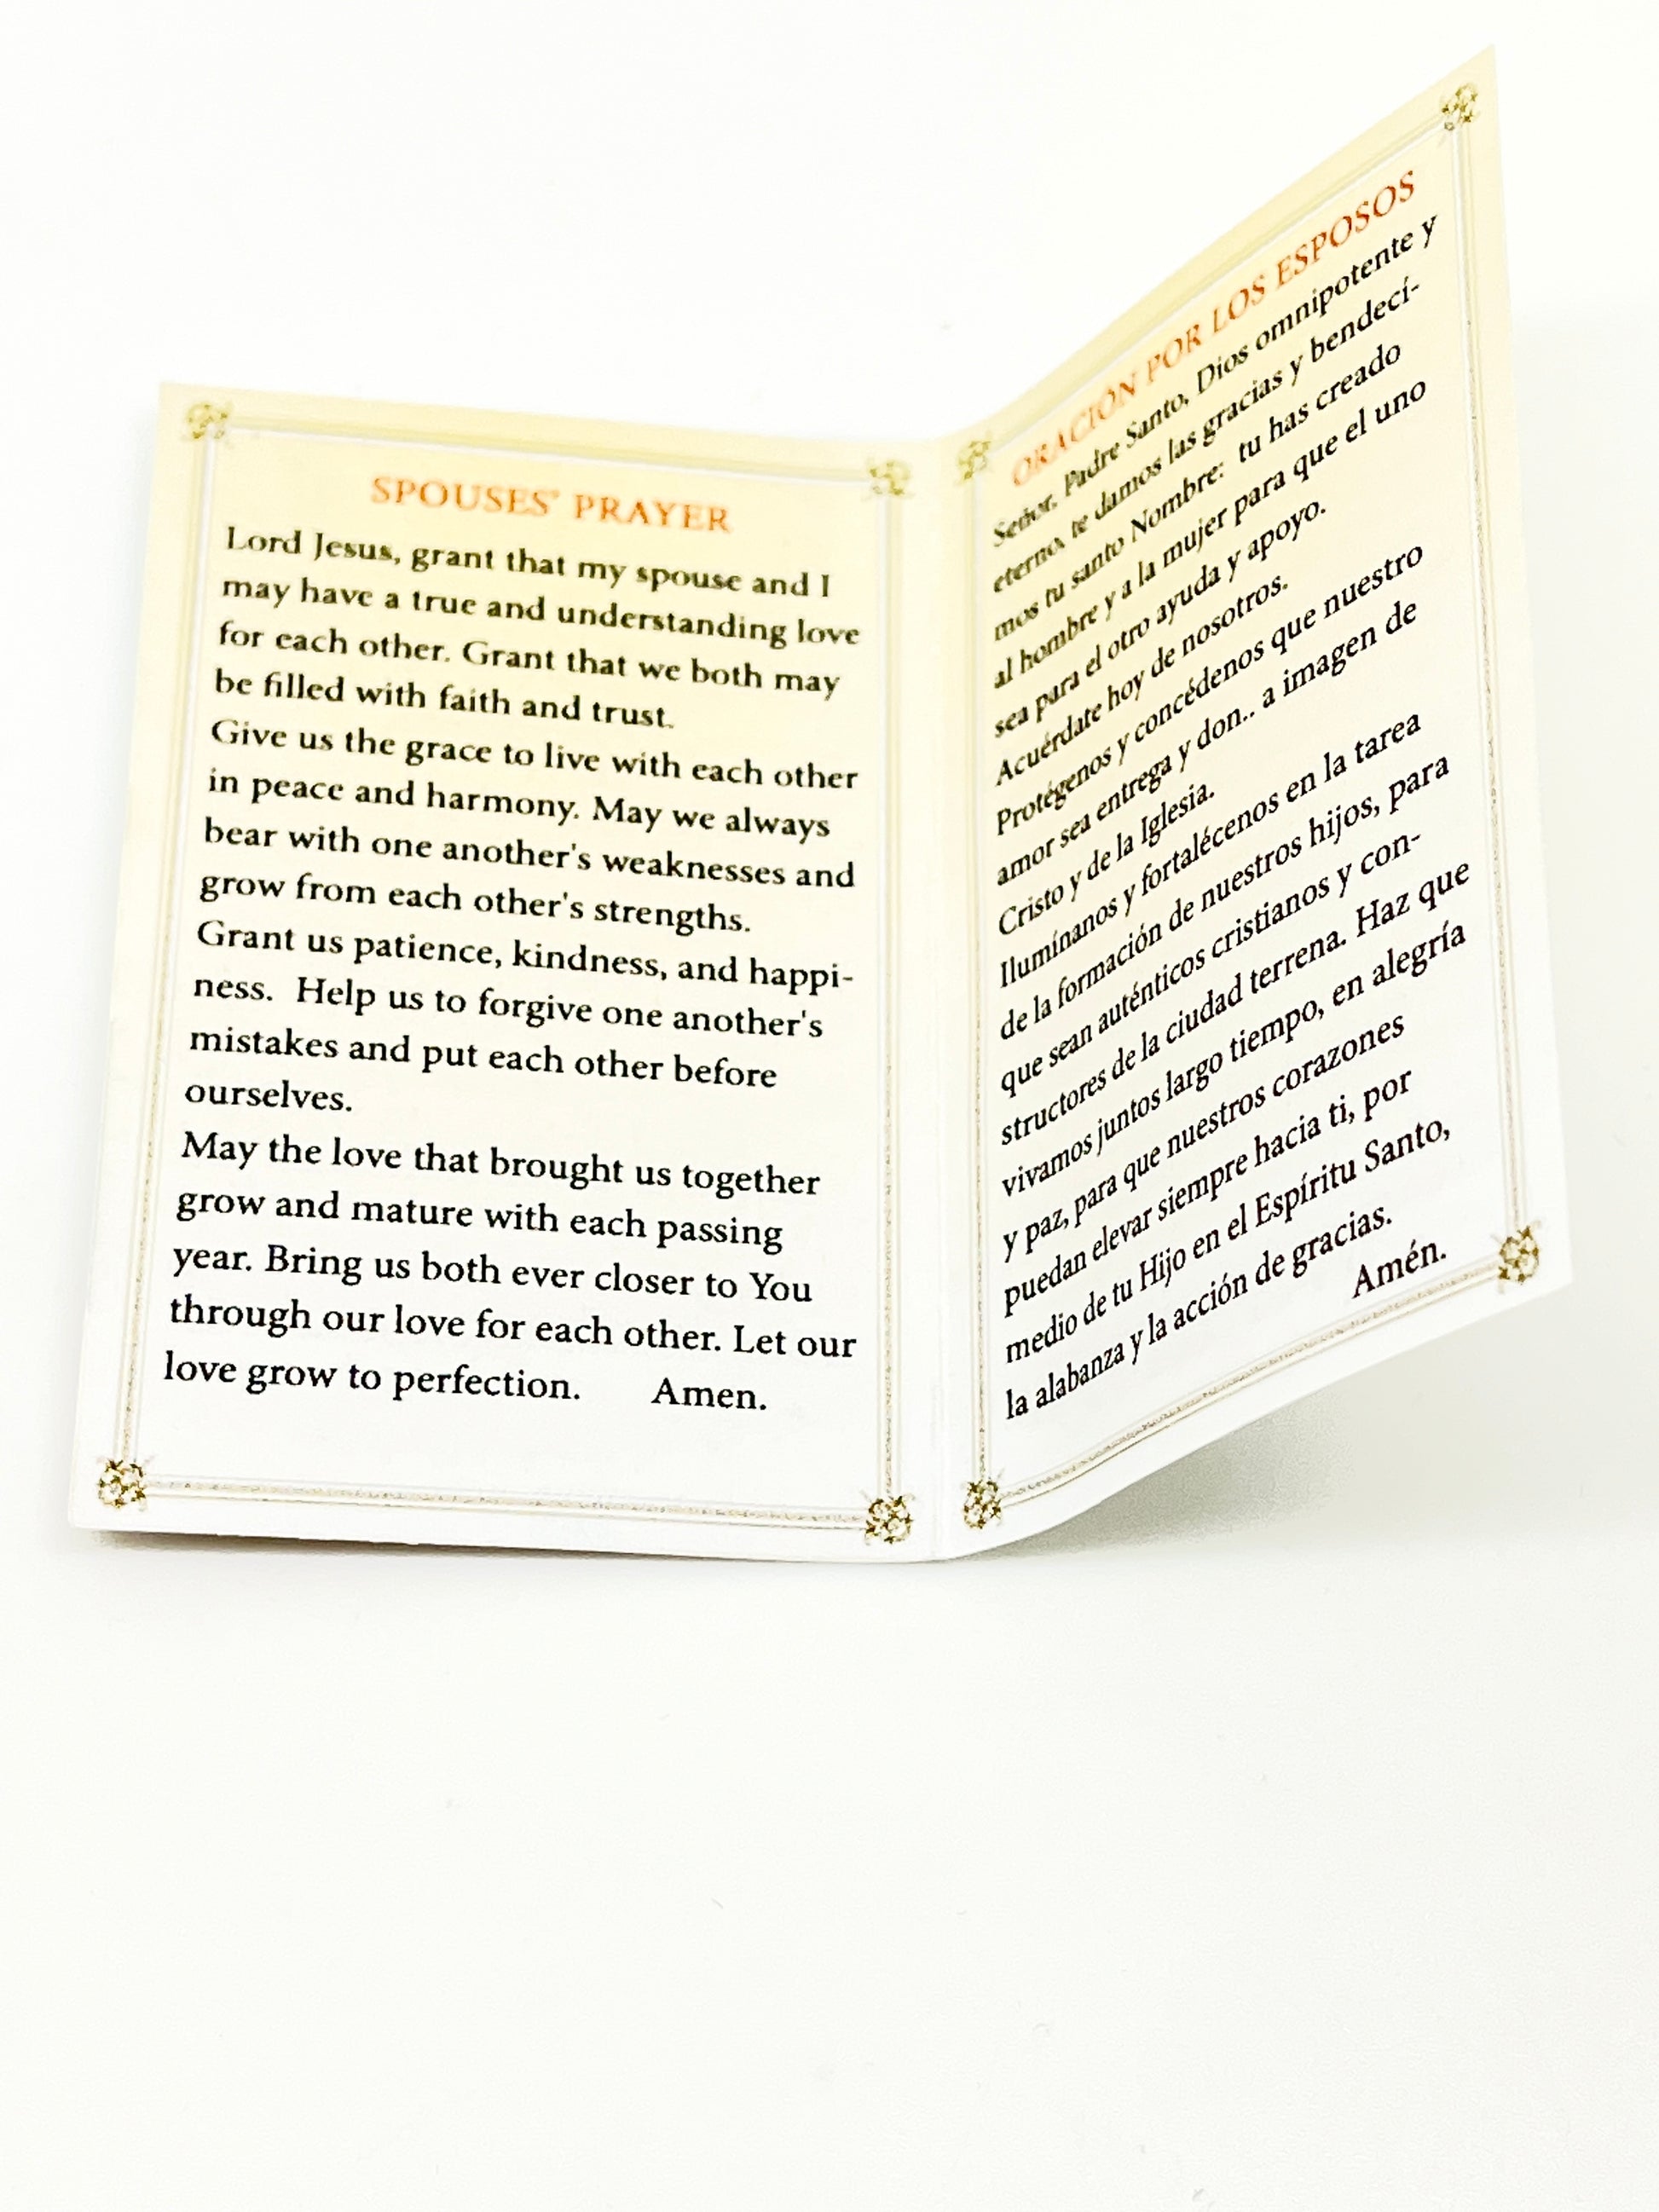 SPOUSES' PRAYER
Lord Jesus, grant that my spouse and I
may have a true and understanding love
for each other. Grant that we both may
be filled with faith and trust.
Give us the grace to live with each other
in peace and harmony. May we always
bear with one another's weaknesses and
grow from each other's strengths.
Grant us patience, kindness, and happi-
ness. Help us to forgive one another's
mistakes and put each other before
ourselves.
May the love that brought us together
grow and mature with each passing
year. Bring us both ever closer to You
through our love for each other. Let our
love grow to perfection. Amen.
ORACIÓN POR LOS ESPOSOS
Señor, Padre Santo, Dios omnipotente y
eterno, te damos las gracias y bendecí-
mos tu santo Nombre: tu has creado
al hombre y a la mujer para que el uno
sea para el otro ayuda y apoyo.
Acuérdate hoy de nosotros.
Protégenos y concédenos que nuestro
amor sea entrega y don.. a imagen de
Cristo y de la Iglesia.
Ilumínanos y fortalécenos en la tarea
de la formación de nuestros hijos, para
que sean auténticos cristianos y con-
structores de la ciudad terrena. Haz que
vivamos juntos largo tiempo, en alegría
y paz, para que nuestros corazones
puedan elevar siempre hacia ti, por
medio de tu Hijo en el Espíritu Santo,
la alabanza y la acción de gracias.
Amén.